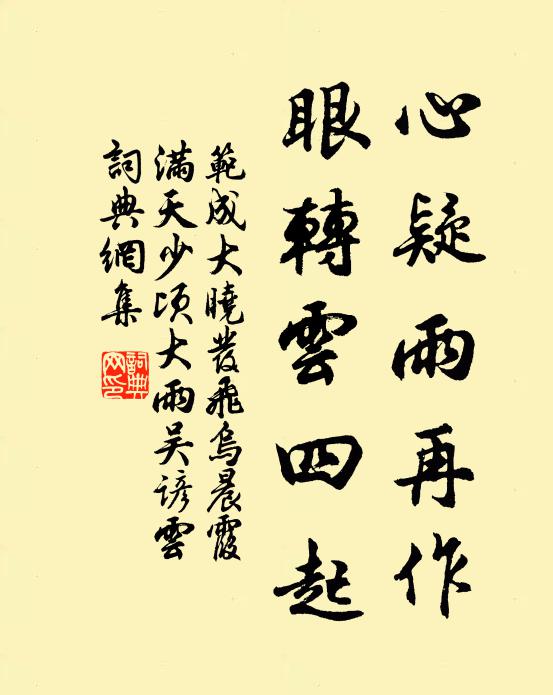 心疑雨再作
眼轉雲四起
範成大曉發飛烏晨霞
滿天少頃大雨吴諺雲
詞典網集
詞典
网印